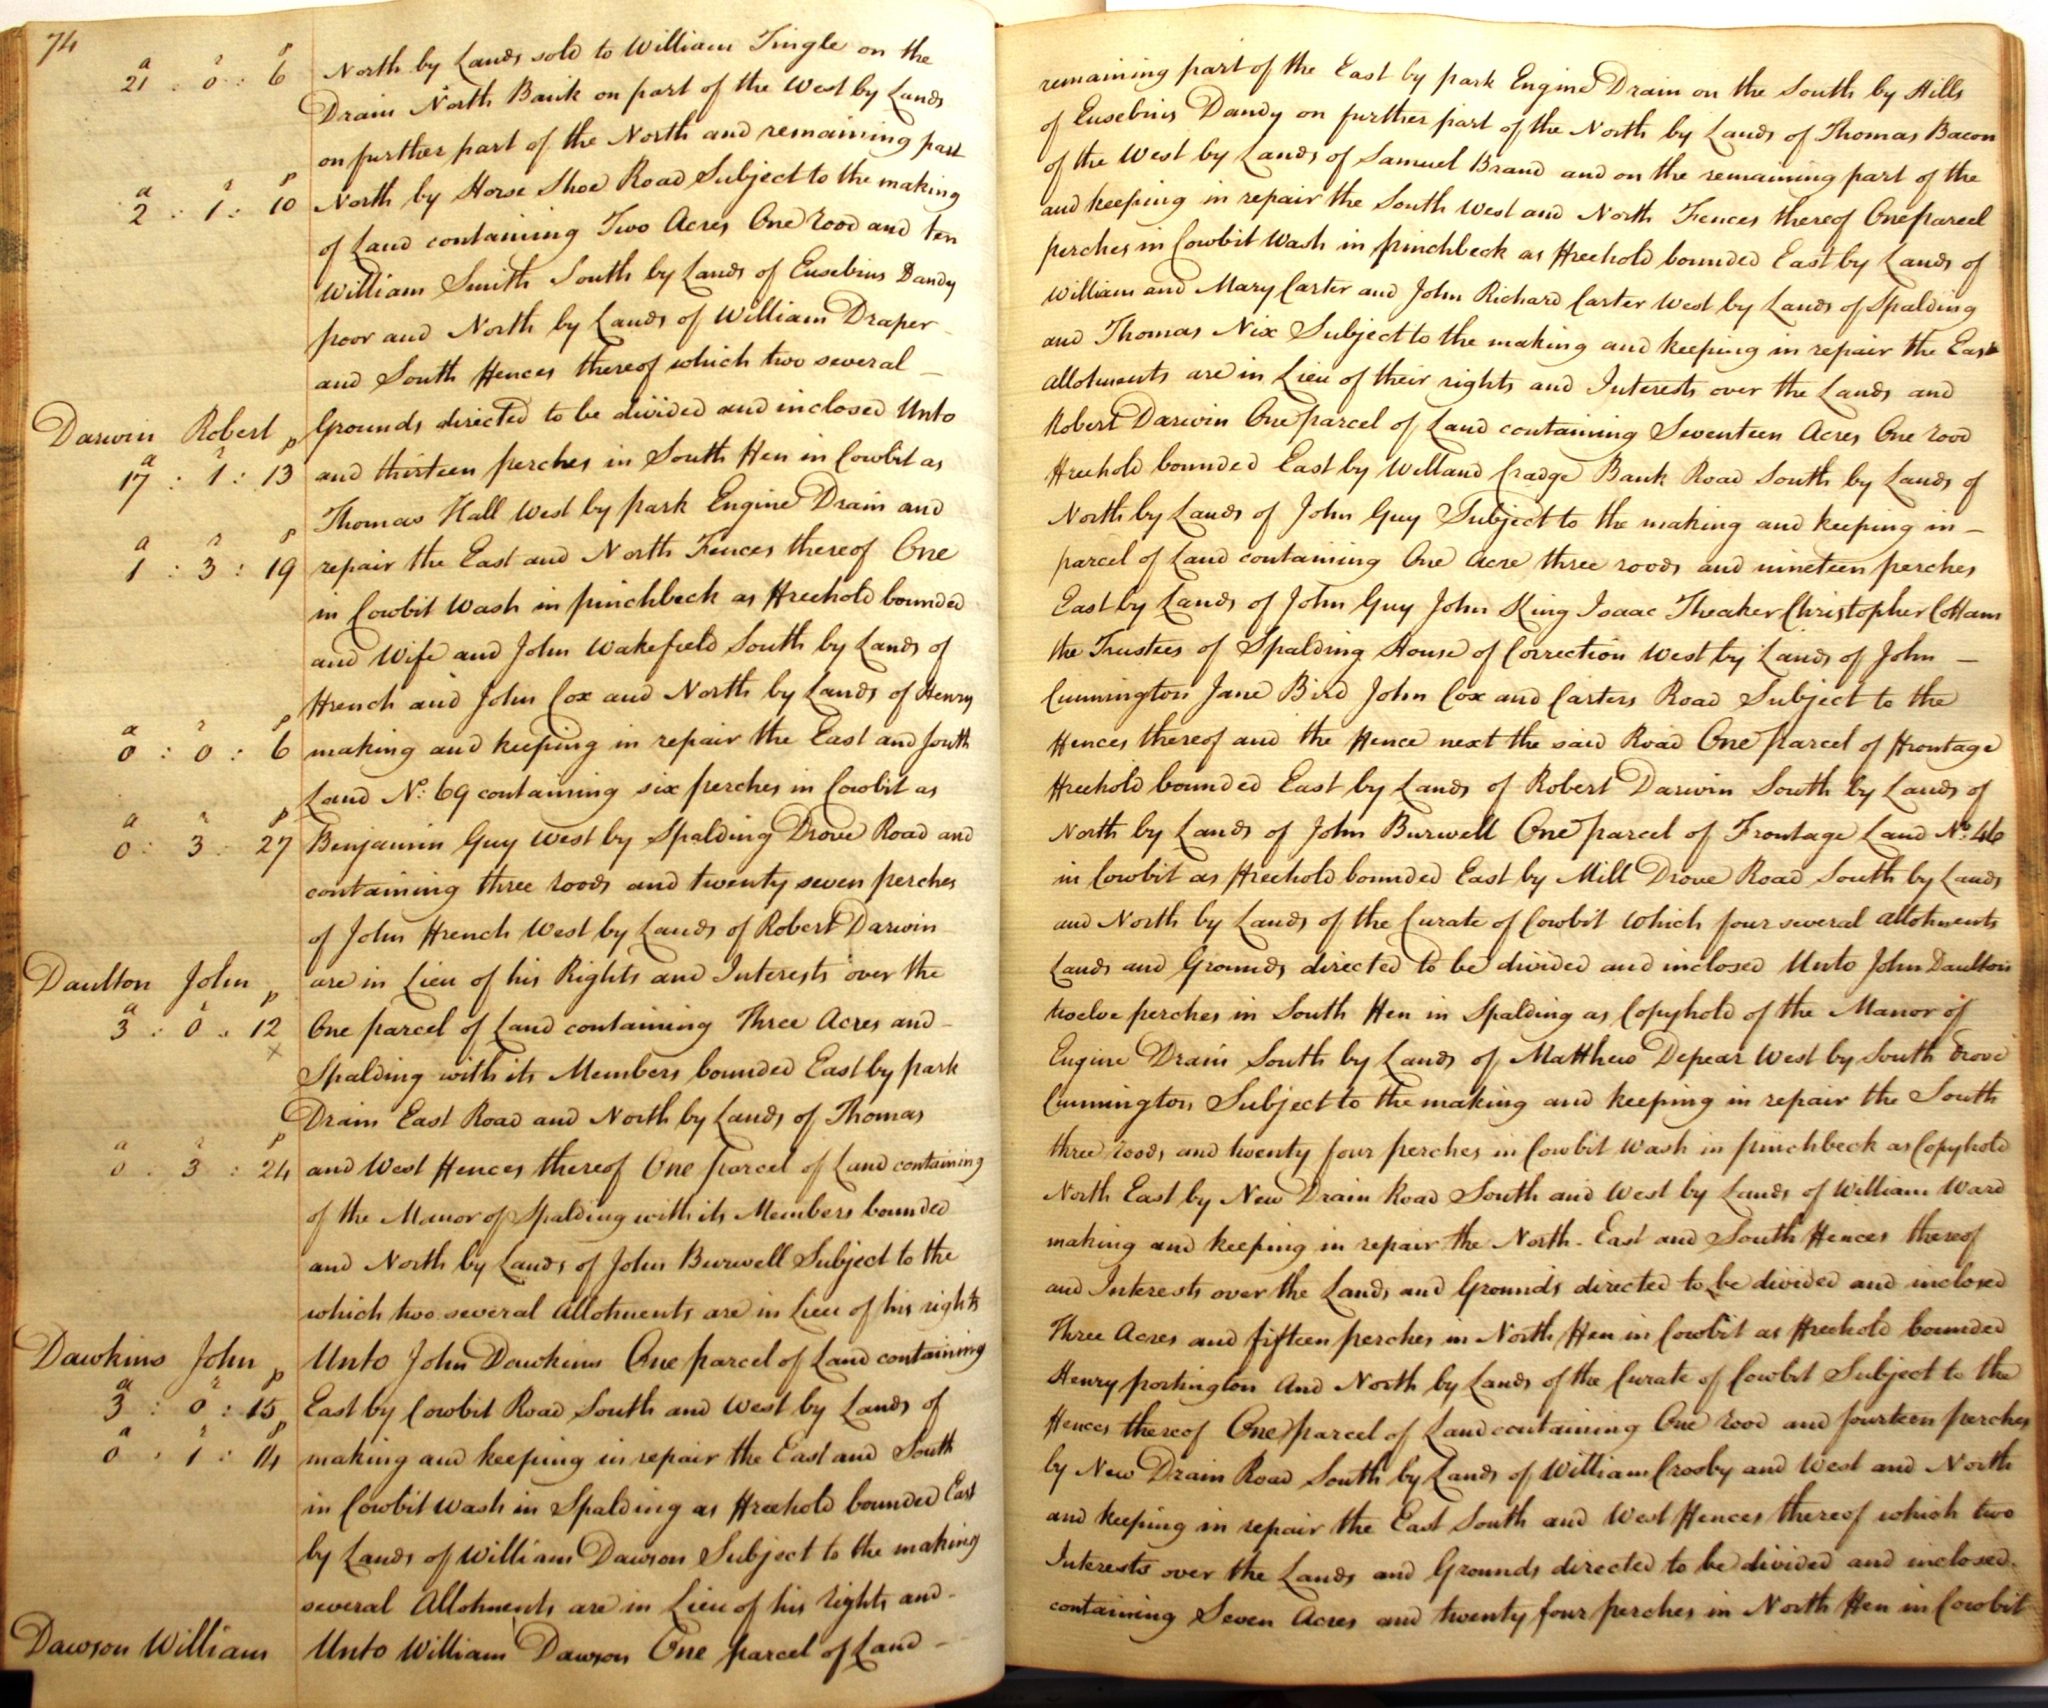 74
a r p
21 : 0 : 6 North by Lands sold to William Tingle on the remaining part of the East by park Engine Drain on the South by Hills
Drain North Bank on part of the West by Lands of Eusebius Dandy on further part of the North by Lands of Thomas Bacon
on further part of the North and remaining part of the West by Lands of Samuel Brand and on the remaining part of the
a r p
2 : 1 : 10 North by Horse Shoe Road Subject to the making and keeping in repair the South West and North Fences thereof One parcel
of Land containing Two Acres One rood and ten perches in Cowbit Wash in pinchbeck as Freehold bounded East by Lands of
William Smith South by Lands of Eusebius Dandy William and Mary Carter and John Richard Carter West by Lands of Spalding
poor and North by Lands of William Draper and Thomas Nix Subject to the making and keeping in repair the East
and South Fences thereof which two several Allotments are in Lieu of their rights and Interests over the Lands and
Darwin Robert Grounds directed to be divided and inclosed Unto Robert Darwin One parcel of Land containing Seventeen Acres One rood
a r p
17 : 1 : 13 and thirteen perches in South Fen in Cowbit as Freehold bounded East by Welland Cradge Bank Road South by Lands of
Thomas Hall West by park Engine Drain and North by Lands of John Guy Subject to the making and keeping in
a r p
1 : 3 : 19 repair the East and North Fences thereof One parcel of Land containing One Acre three roods and nineteen perches
in Cowbit Wash in pinchbeck as Freehold bounded East by Lands of John Guy John King Isaac Theaker Christopher Cottam
and Wife and John Wakefield South by Lands of the Trustees of Spalding House of Correction West by Lands of John
French and John Cox and North by Lands of Henry Cunnington Jane Bird John Cox and Carters Road Subject to the
a r p
0 : 0 : 6 making and keeping in repair the East and South Fences thereof and the Fence next the said Road One parcel of Frontage
Land No: 69 containing six perches in Cowbit as Freehold bounded East by Lands of Robert Darwin South by Lands of
a r p
0 : 3 : 27 Benjamin Guy West by Spalding Drove Road and North by Lands of John Burwell One parcel of Frontage Land No: 46
containing three roods and twenty seven perches in Cowbit as Freehold bounded East by Mill Drove Road South by Lands
of John French West by Lands of Robert Darwin and North by Lands of the Curate of Cowbit Which four several Allotments
Daulton John are in Lieu of his Rights and Interests over the Lands and Grounds directed to be divided and inclosed Unto John Daulton
a r p
3 : 0 : 12 One parcel of Land containing Three Acres and twelve perches in South Fen in Spalding as Copyhold of the Manor of
x
Spalding with its Members bounded East by park Engine Drain South by Lands of Matthew Depear West by South drove
Drain East Road and North by Lands of Thomas Cunnington Subject to the making and keeping in repair the South
a r p
0 : 3 : 24 and West Fences thereof One parcel of Land containing three roods and twenty four perches in Cowbit Wash in pinchbeck as Copyhold
of the Manor of Spalding with its Members bounded North East by New Drain Road South and West by Lands of William Ward
and North by Lands of John Burwell Subject to the making and keeping in repair the North-East and South Fences thereof
which two several Allotments are in Lieu of his rights and Interests over the Lands and Grounds directed to be divided and inclosed
Dawkins John Unto John Dawkins One parcel of Land containing Three Acres and fifteen perches in North Fen in Cowbit as Freehold bounded
a r p
3 : 0 : 15 East by Cowbit Road South and West by Lands of Henry portington And North by Lands of the Curate of Cowbit Subject to the
a r p
0 : 1 : 14 making and keeping in repair the East and South Fences thereof One parcel of Land containing One rood and fourteen perches
in Cowbit Wash in Spalding as Freehold bounded East by New Drain Road South by Lands of William Crosby and West and North
by Lands of William Dawson Subject to the making and keeping in repair the East South and West Fences thereof which two
several Allotments are in Lieu of his rights and Interests over the Lands and Grounds directed to be divided and inclosed.
Dawson William Unto William Dawson One parcel of Land containing Seven Acres and twenty four perches in North Fen in Cowbit